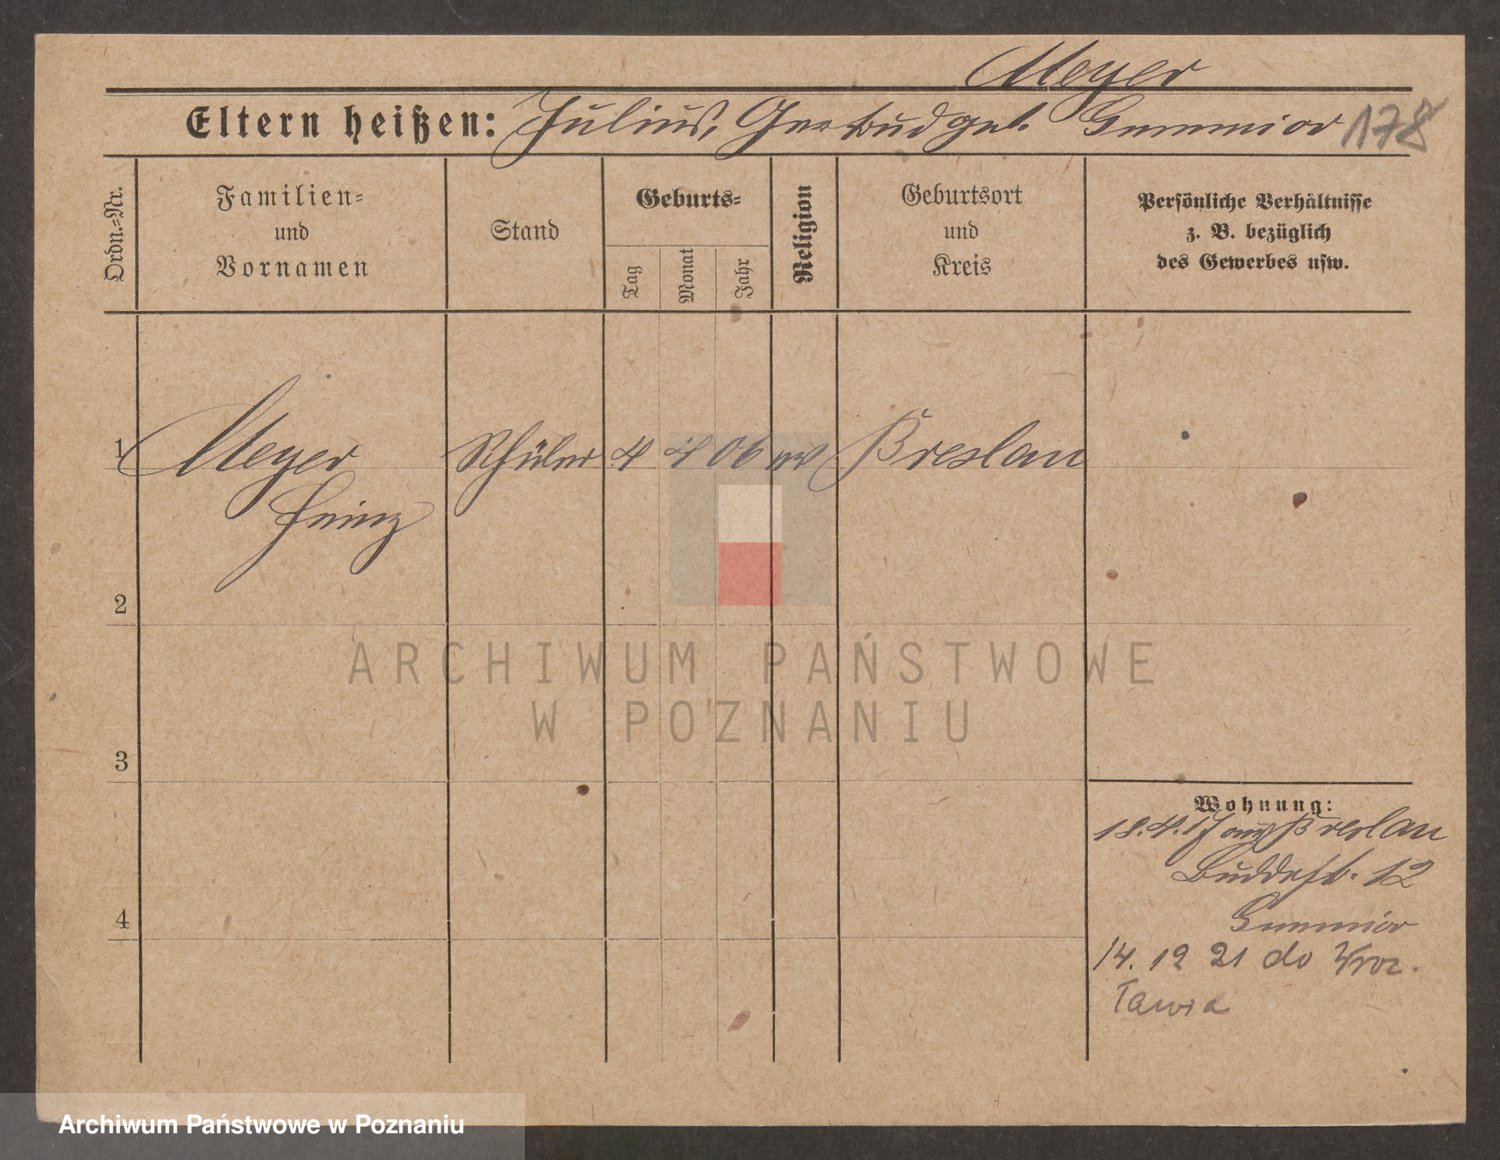 Meyer
Eltern heißen: Julius, Gertrud geb. Gummior 178
Ordn.-Nr.
Familien-
und
Vornamen
Stand
Geburts-
Tag
Monat
Jahr
Religion
Geburtsort
und
Kreis
Persönliche Verhältnisse
z. B. bezüglich
des Gewerbes usw.
1 Meyer Schüler 4 4 06 ev Breslau
Heinz
2
ARCHIWUM PAŃSTWOWE
W POZNANIU
3
Wohnung:
18.4.17 aus Breslau
12
4
Gummior
14. 12 21 do Wroc.
ławia
Archiwum Państwowe w Poznaniu